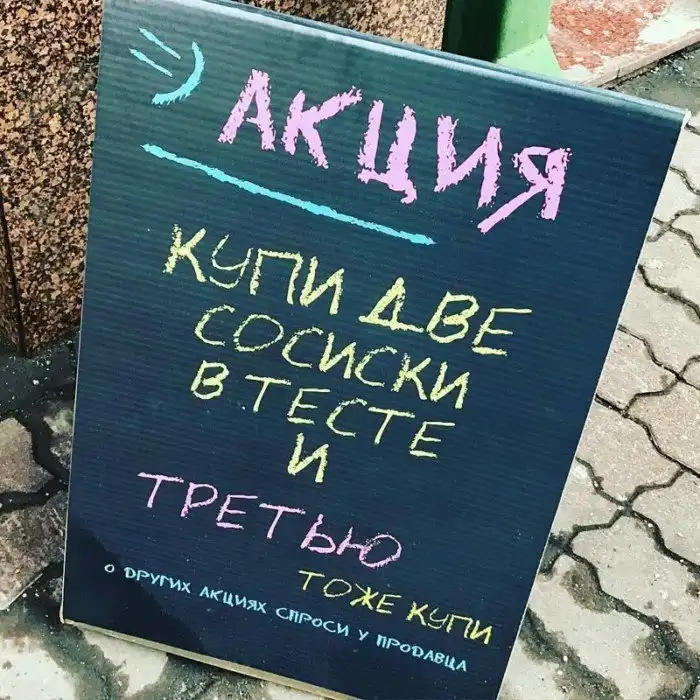 АКЦИЯ
КУПИ ДВЕ
СОСИСКИ
В ТЕСТЕ
И
ТРЕТЬЮ
ТОЖЕ КУПИ
О ДРУГИХ АКЦИЯХ СПРОСИ У ПРОДАВЦА